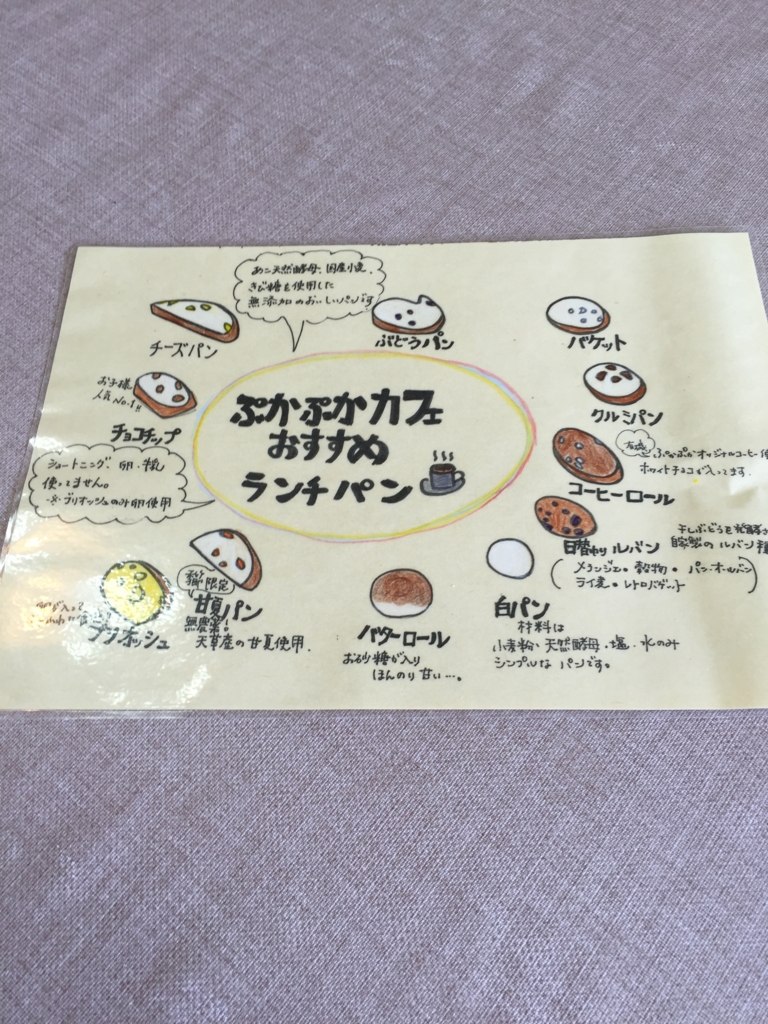 あこ天然酵母、国産小麦、
きび糖を使用した
無添加のおいしいパンです
チーズパン
ぶどうパン
バゲット
お子様
人気No.1!!
チョコチップ
クルミパン
ぷかぷかカフェ
おすすめ
ランチパン
ショートニング、卵・乳
使ってません。
※ブリオッシュのみ卵使用
ぷかぷかオリジナルコーヒー使
ホワイトチョコが入ってます。
コーヒーロール
干しぶどうを発酵さ
自家製のルバン種
日替わりルバン
(メランジェ・穀物・パン・オ・ルバン
ライ麦・レトロバゲット)
ブリオッシュ
限定
甘夏パン
無農薬!
天草産の甘夏使用.
バターロール
お砂糖が入り
ほんのり甘い…。
白パン
材料は
小麦粉・天然酵母・塩・水のみ
シンプルなパンです。